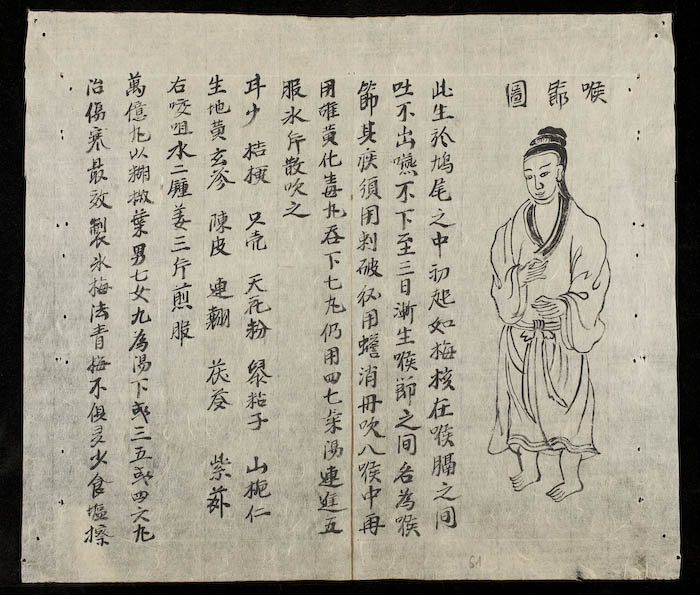 喉節圖
此生於鳩尾之中初起如梅核在喉膈之间
吐不出嚥不下至三日漸生喉節之间名為喉
節其疾須用刺破仍用蟾消丹吹入喉中再
用雄黃化毒丸吞下七丸仍用四七氣湯連進五
服氷片散吹之
甘少 桔梗 只壳 天花粉 鼠粘子 山栀仁
生地黄 玄参 陳皮 連翹 茯苓 紫苏
右咬咀水二鍾姜三片煎服
萬億丸以糊椒葉男七女九為湯下或三五或四六丸
治傷寒最效製氷梅法青梅不俱多少食塩擦
61